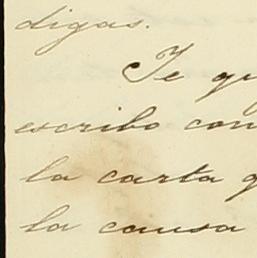 digas.
Te qu
escribo con
la carta q
la causa